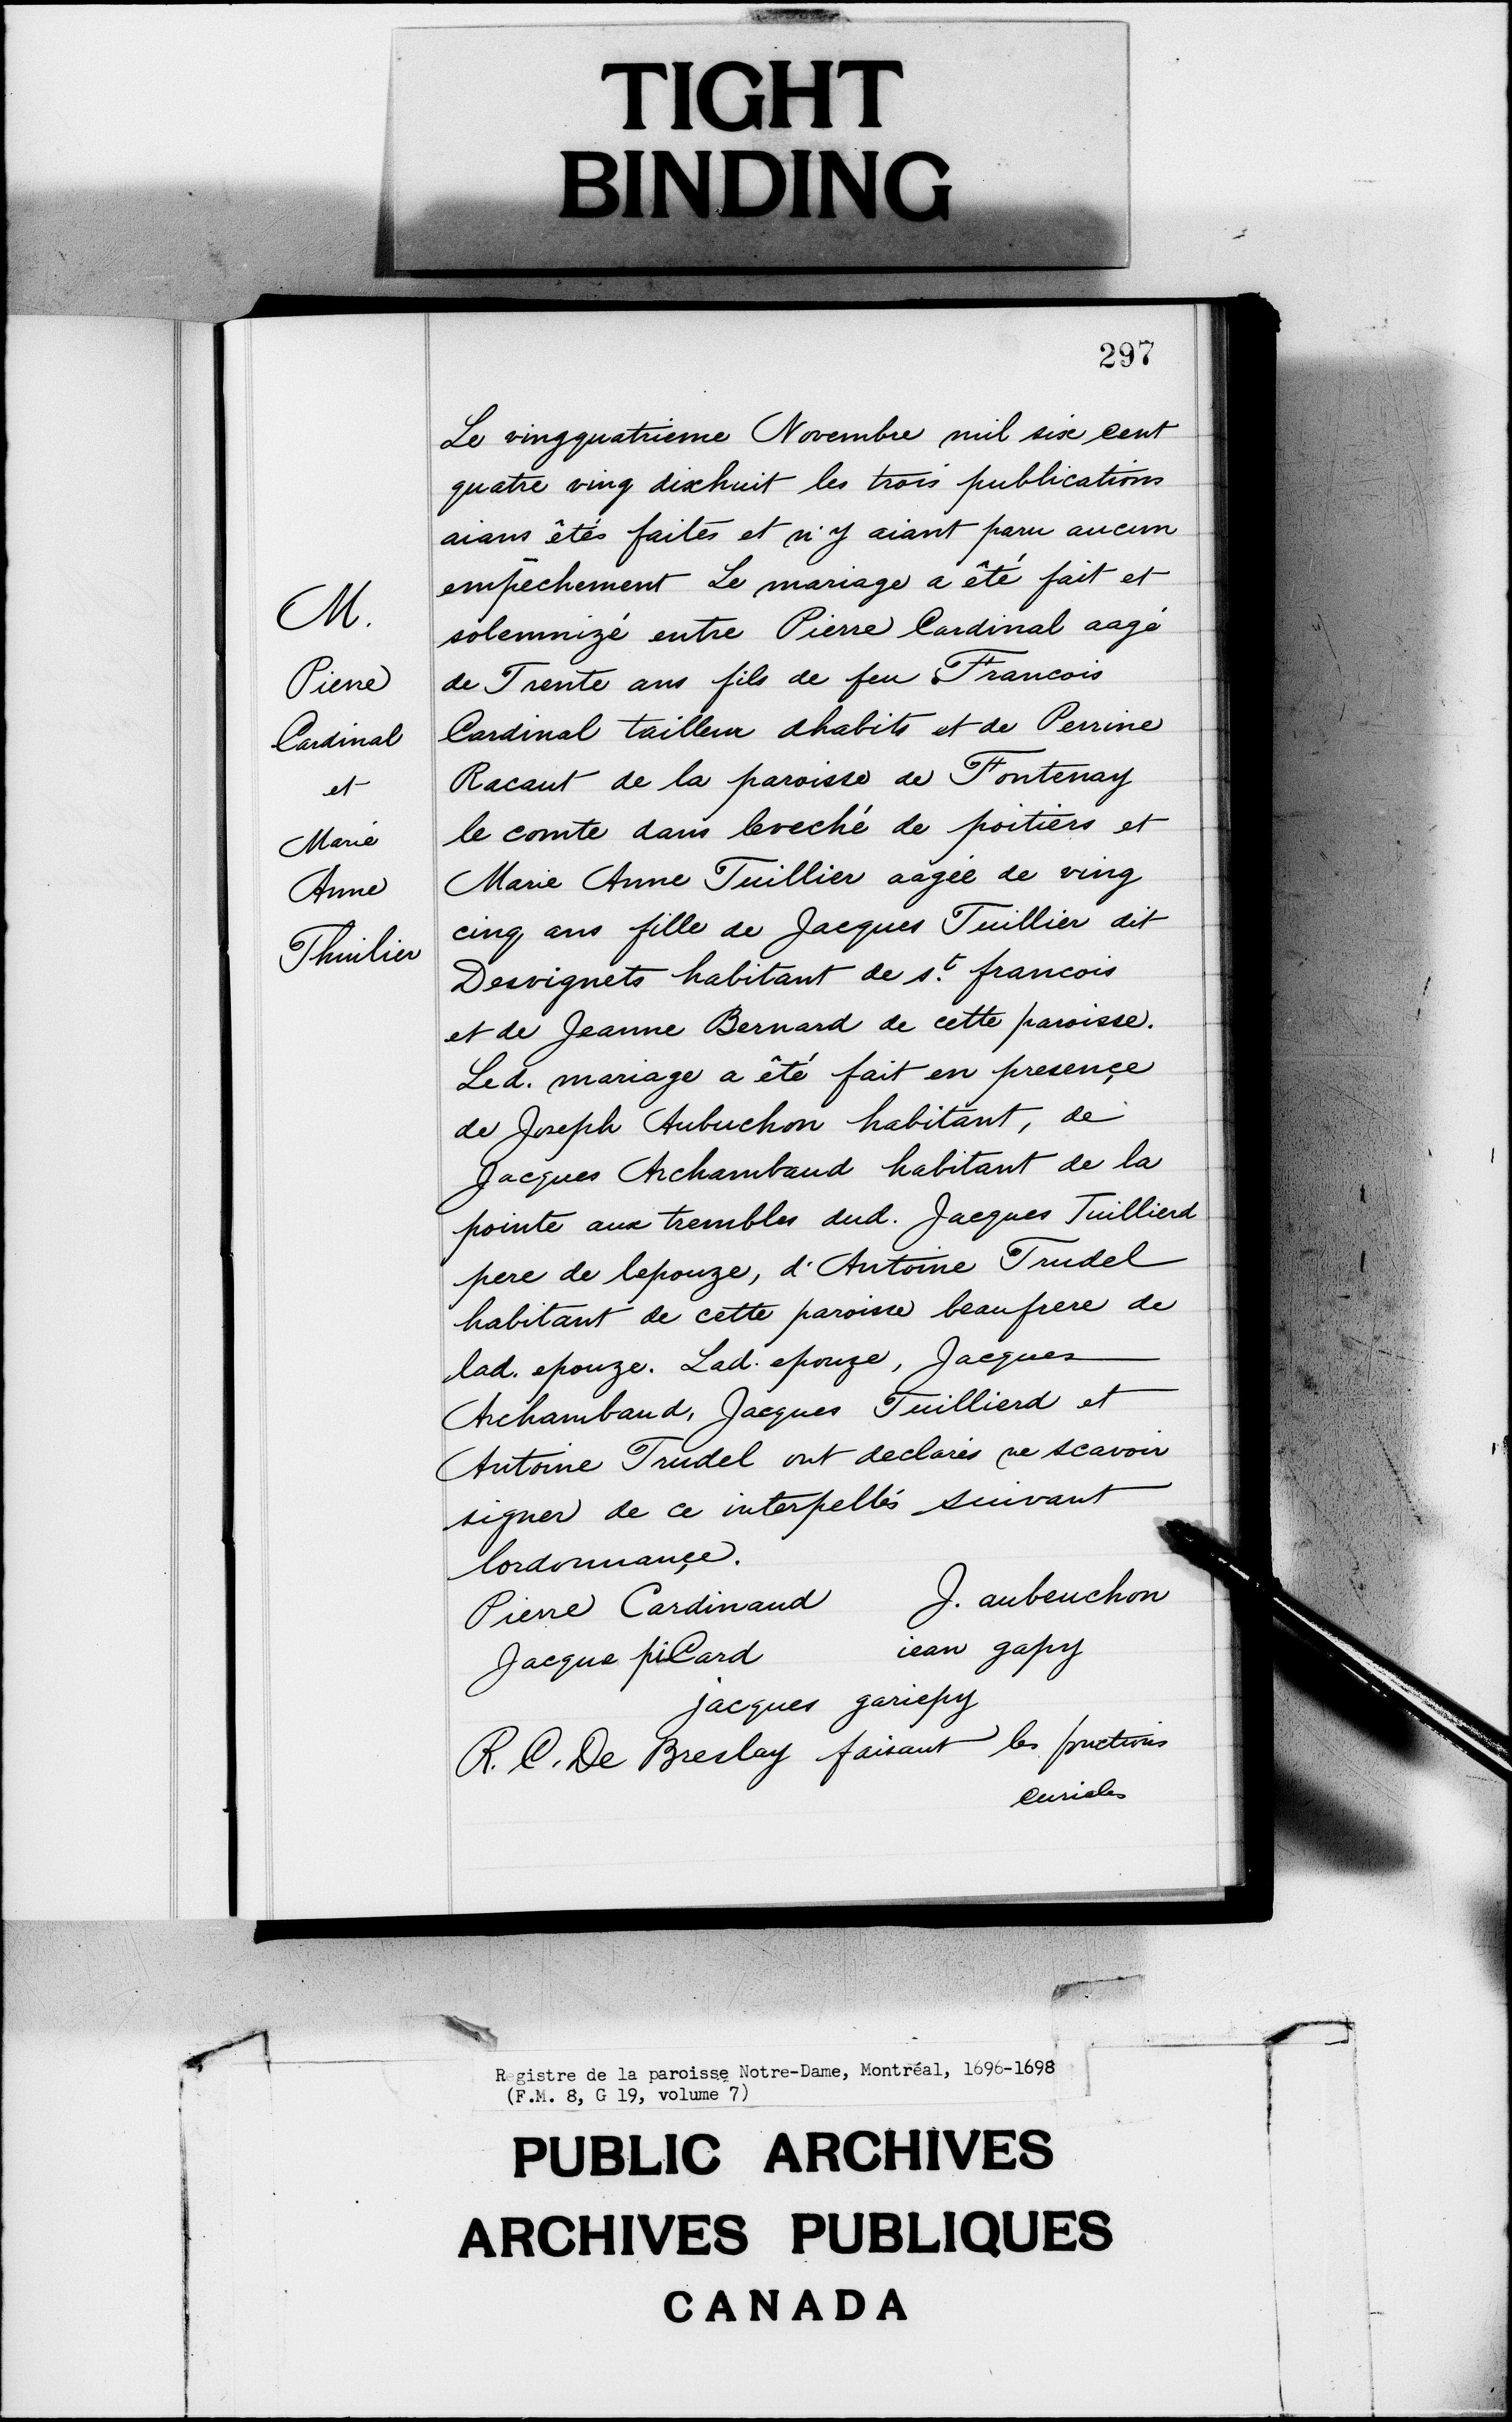 TIGHT
BINDING
297
M.
Pierre
Cardinal
et
Marie
Anne
Thuilier
Le vingquatrieme Novembre mil six cent
quatre ving dixhuit les trois publications
aians êtés faites et n'y aiant paru aucun
empêchement Le mariage a êté fait et
solemnizé entre Pierre Cardinal aagé
de Trente ans fils de feu Francois
Cardinal tailleur dhabits et de Perrine
Racaut de la paroisse de Fontenay
le comte dans leveché de poitiers et
Marie Anne Tuillier aagée de ving
cinq ans fille de Jacques Tuillier dit
Desvignets habitant de st. francois
et de Jeanne Bernard de cette paroisse.
Led. mariage a êté fait en presençe
de Joseph Aubuchon habitant, de
Jacques Archambaud habitant de la
pointe aux trembles dud. Jacques Tuillierd
pere de lepouze, d'Antoine Trudel
habitant de cette paroisse beaufrere de
lad. epouze. Lad. epouze, Jacques
Archambaud, Jacques Tuillierd et
Antoine Trudel ont declarés ne scavoir
signer de ce interpellés suivant
lordonnançe.
Pierre Cardinaud J. aubeuchon
Jacque piCard iean gapy
jacques gariepy
R. C. De Breslay faisant les fonctions
curiales
Registre de la paroisse Notre-Dame, Montréal, 1696-1698
(F.M. 8, G 19, volume 7)
PUBLIC ARCHIVES
ARCHIVES PUBLIQUES
CANADA